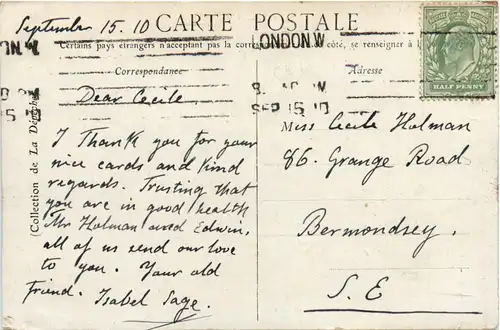 September 15. 10 CARTE POSTALE
Certains pays étrangers n'acceptant pas la corres côté, se renseigner à l
LONDON.W
SEP 15 10
Correspondance
Adresse
HALF PENNY
(Collection de La Dépêche)
Dear Cecile
I Thank you for your
nice cards and kind
regards. Trusting that
you are in good health
Mr Holman and Edwin,
all of us send our love
to you. Your old
Friend. Isabel Sage.
Miss Cecile Holman
86. Grange Road
Bermondsey.
S. E